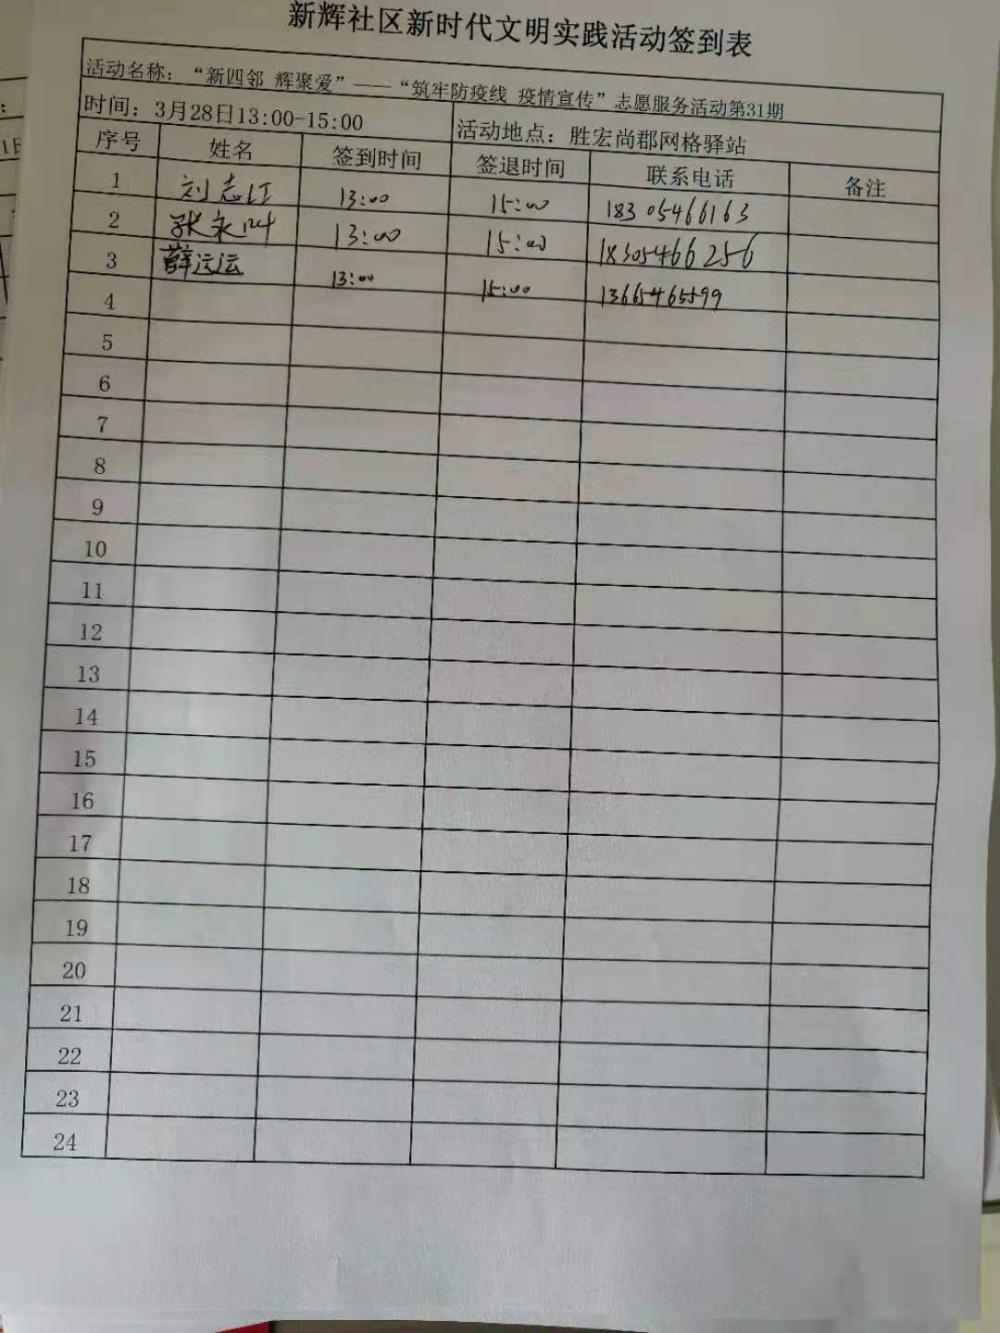 新辉社区新时代文明实践活动签到表
活动名称：“新四邻 辉聚爱”——“筑牢防疫线 疫情宣传”志愿服务活动第31期
时间：3月28日13:00-15:00 活动地点：胜宏尚郡网格驿站
序号 姓名 签到时间 签退时间 联系电话 备注
1 刘志江 13:00 15:00 18305466163
2 张永 13:00 15:00 18305466256
3 薛运运 13:00 15:00 13665465599
4
5
6
7
8
9
10
11
12
13
14
15
16
17
18
19
20
21
22
23
24